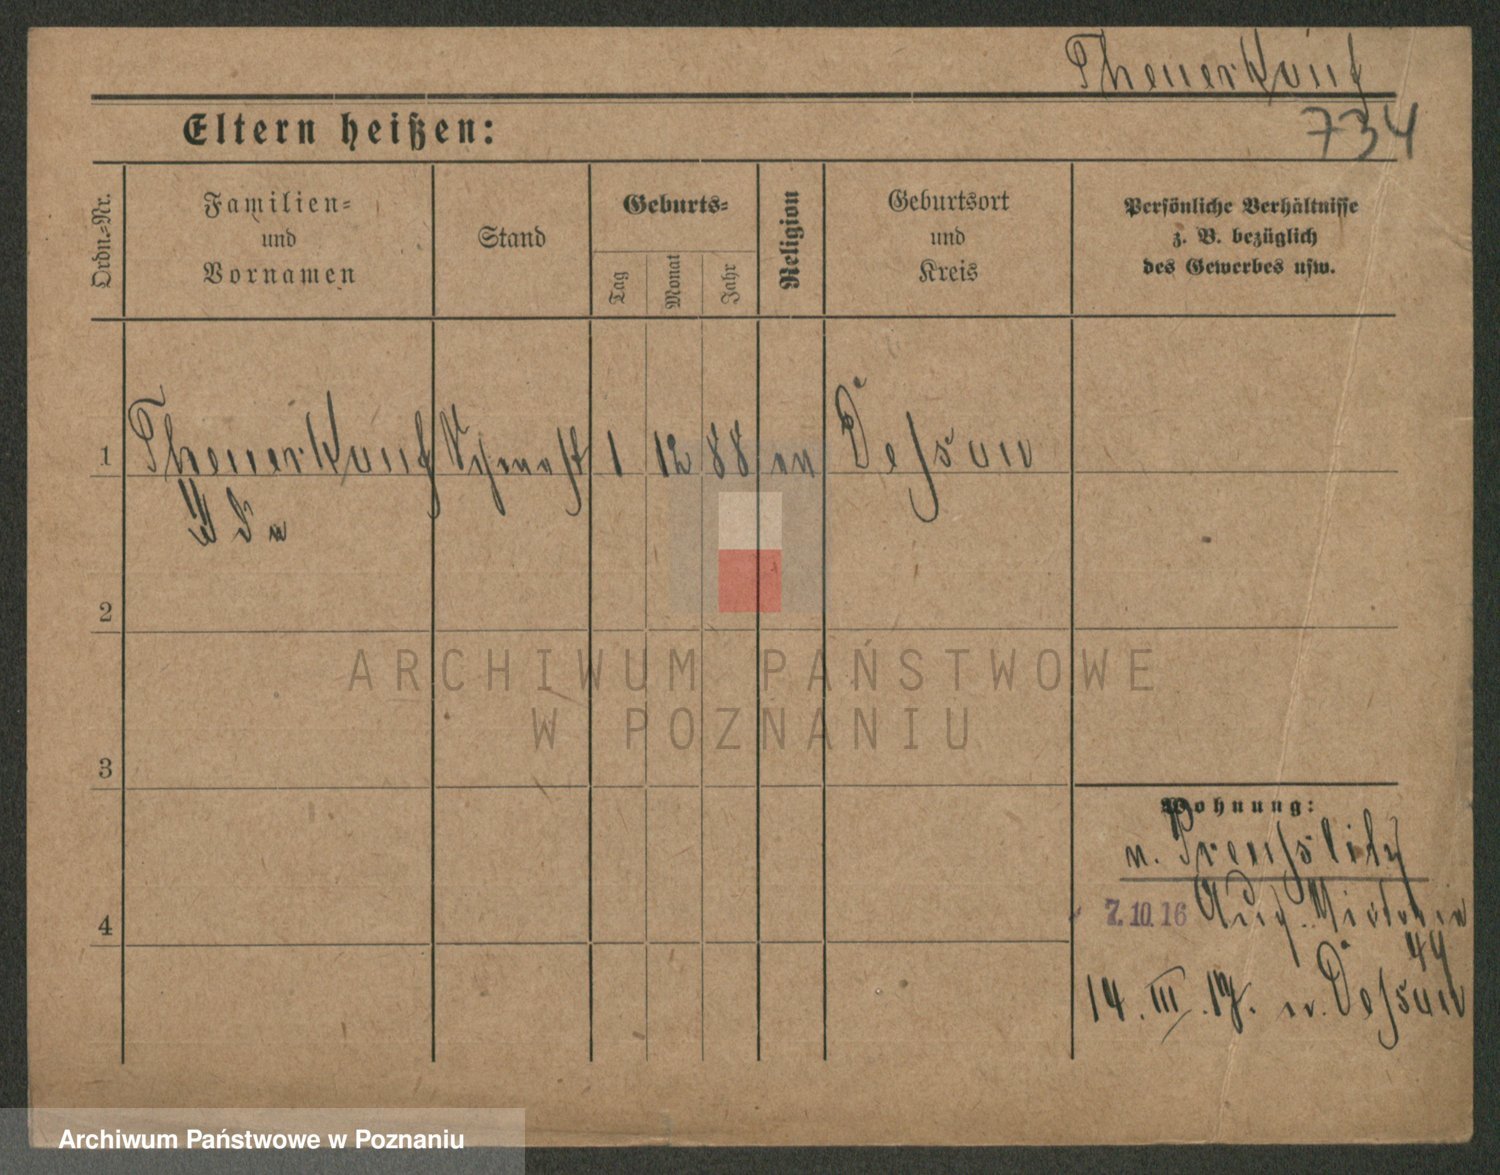 Theuerkauf
734
Eltern heißen:
Ordn.-Nr.
Familien-
und
Vornamen
Stand
Geburts-
Tag
Monat
Jahr
Religion
Geburtsort
und
Kreis
Persönliche Verhältnisse
z. B. bezüglich
des Gewerbes usw.
1 Theuerkauf 1 12 88 ev Dessau
Ida
2
ARCHIWUM PAŃSTWOWE
W POZNANIU
3
Wohnung:
n. Preusslitz
7.10.16 Aug. Victoria
44
14. III. 17. n. Dessau
4
Archiwum Państwowe w Poznaniu